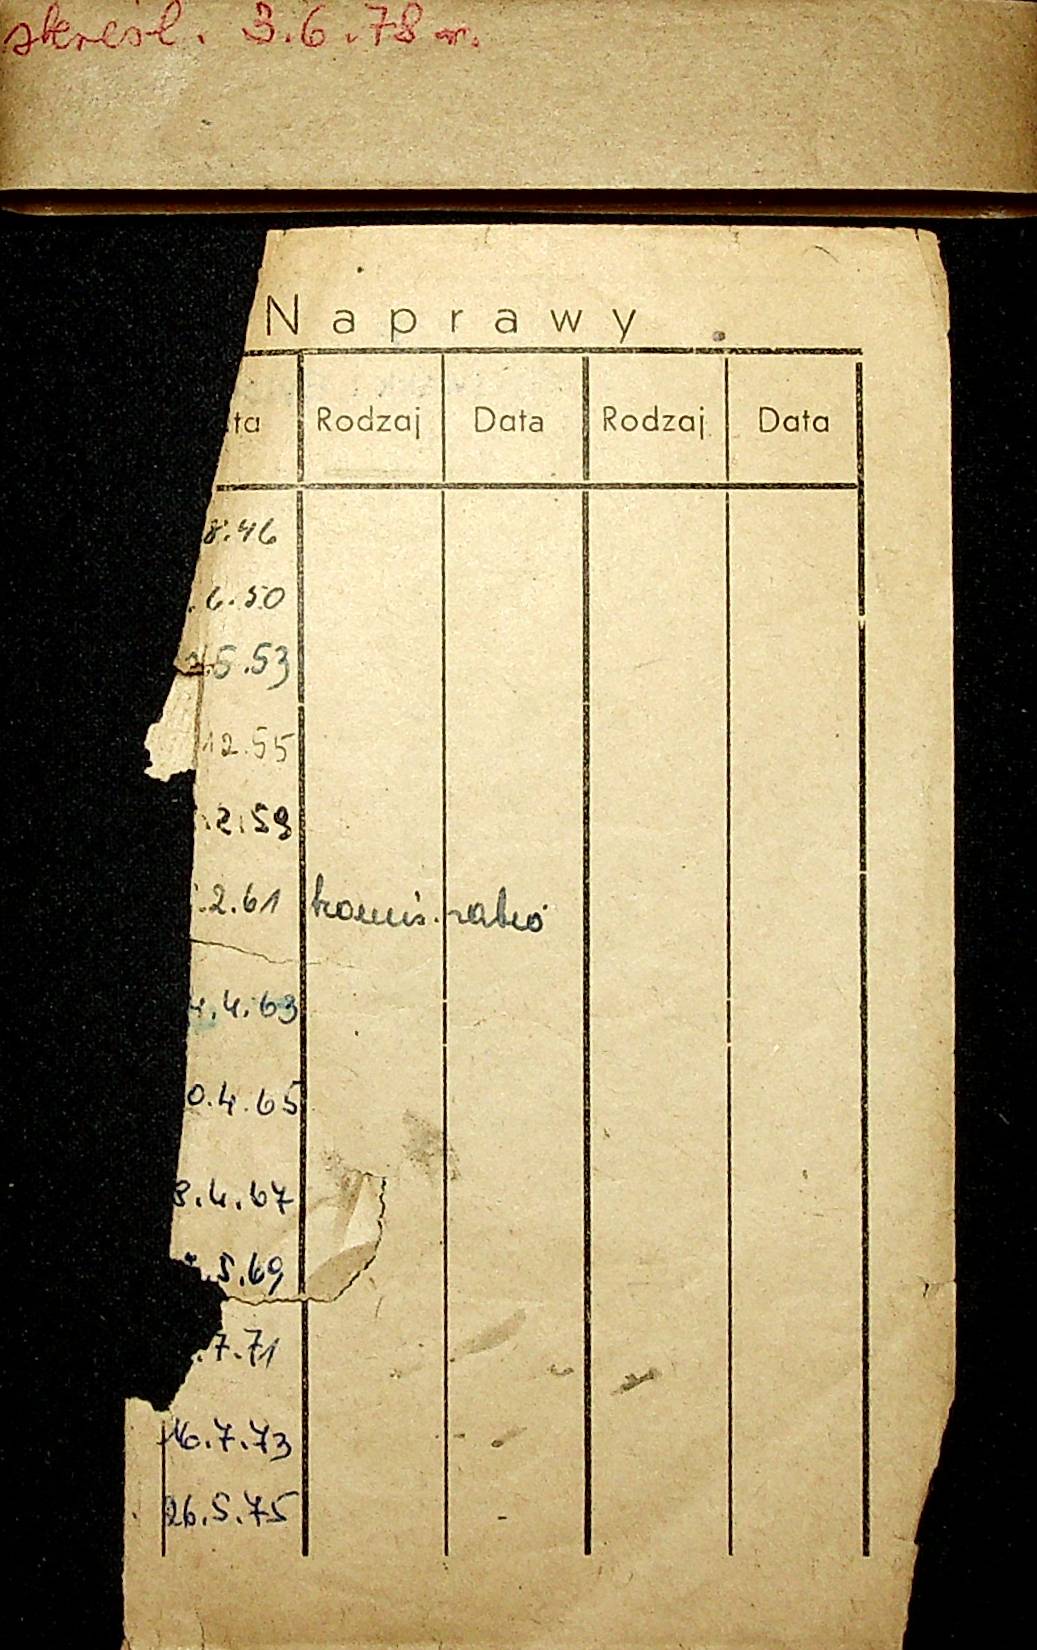 skreśl. 3.6.78 r.
Naprawy
ta Rodzaj Data Rodzaj Data
8.46
.6.50
.5.53
12.55
.2.59
.2.61
4.4.63
0.4.65
3.4.67
.5.69
.7.71
16.7.73
26.5.75